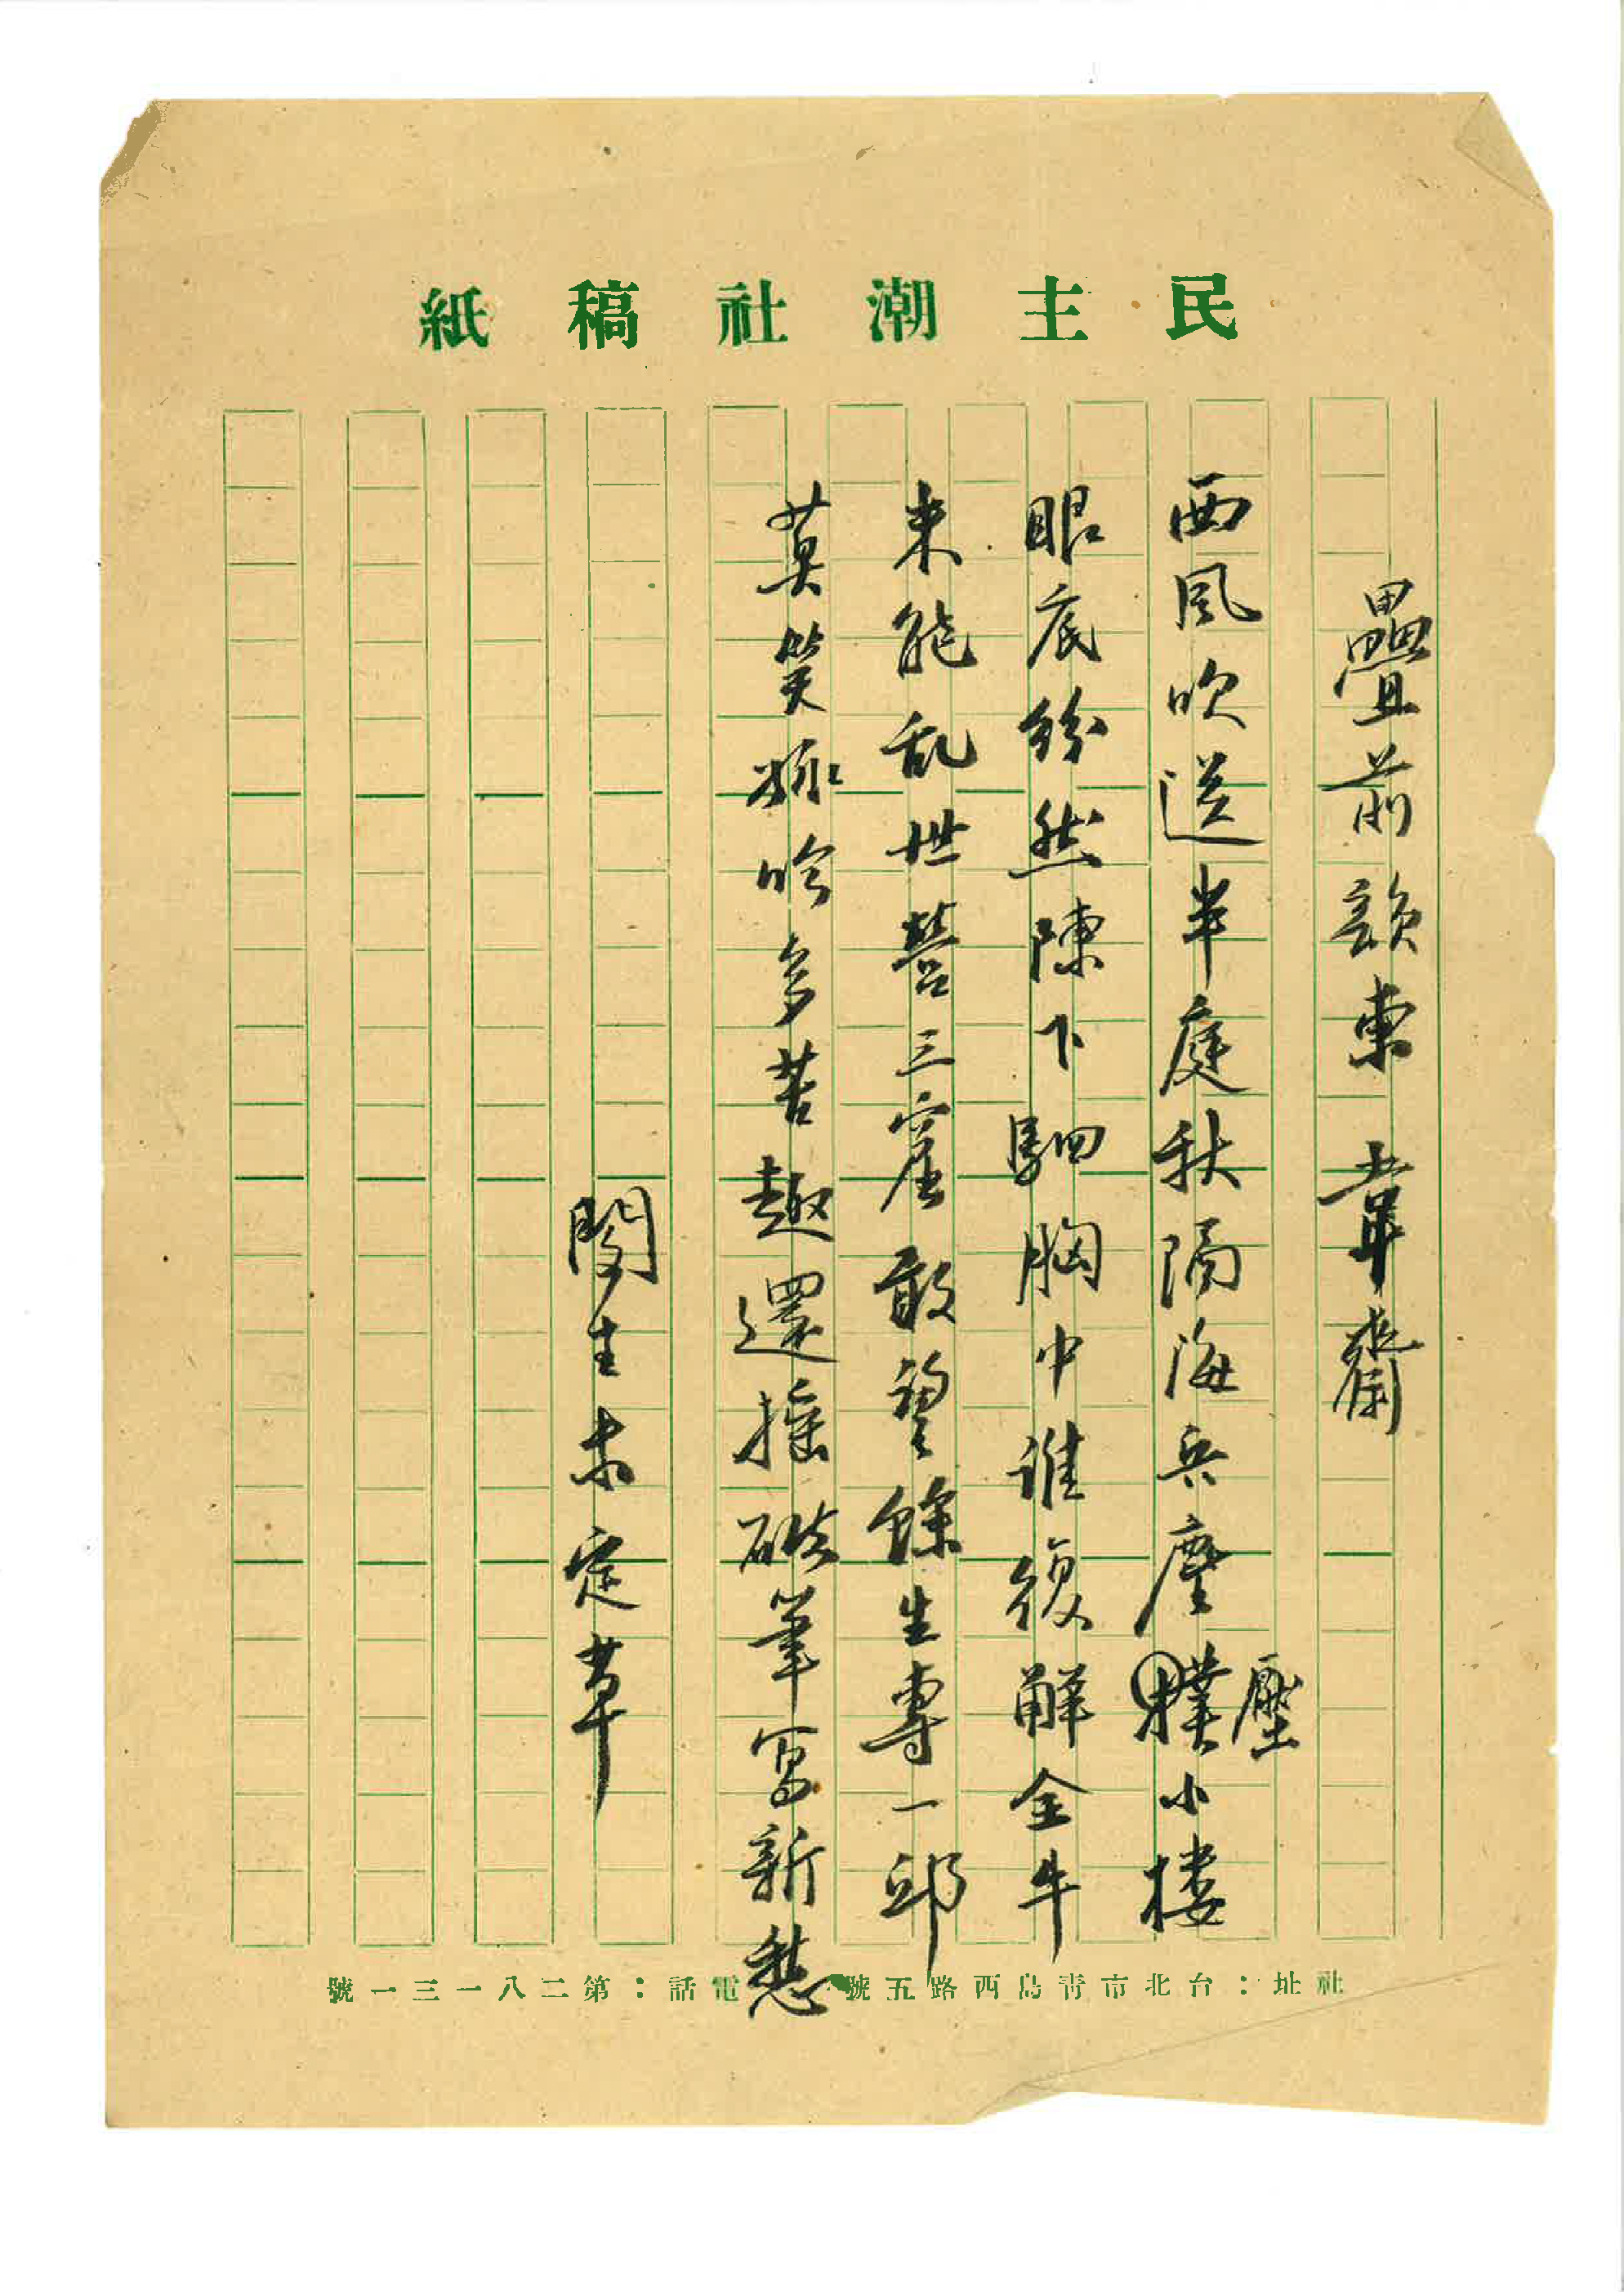 民主潮社稿紙
疊前韻柬　韋齋
西風吹送半庭秋隔海兵塵撲小楼
壓
眼底紛然陳下駟胸中誰復解全牛
未能乱世營三窟敢望餘生專一邱
莫笑吟多苦趣還搖筆寫新愁
閔生未定草
社址：台北市青島西路五號　電話：第二八一三一號